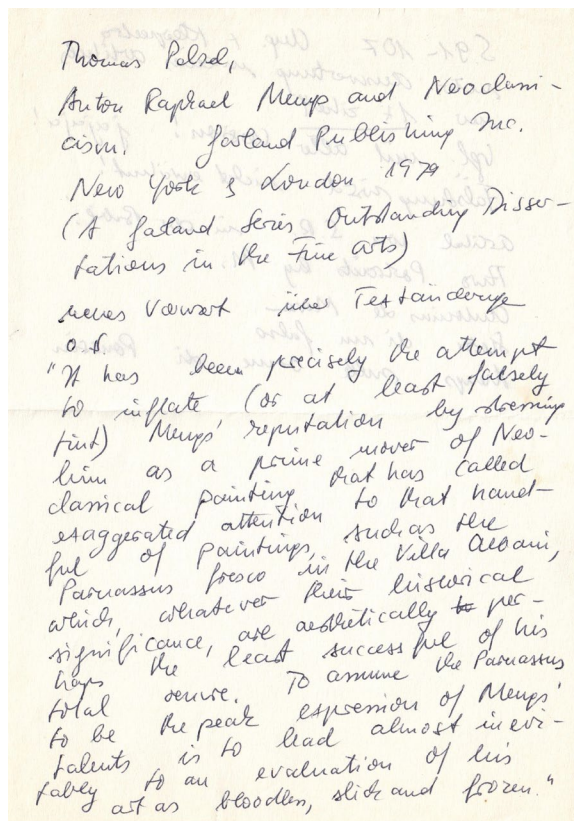 Thomas Pelzel,
Anton Raphael Mengs and Neoclassi-
cism. Garland Publishing Inc.
New York & London 1979
(A Garland Series Outstanding Disser-
tations in the Fine arts)
neues Vorwort über Textänderunge
of
"It has been precisely the attempt
to inflate (or at least falsely
tint) Mengs' reputation by stressing
him as a prime mover of Neo-
classical painting that has called
exaggerated attention to that hand-
ful of paintings, such as the
Parnassus fresco in the Villa Albani,
which, whatever their historical
significance, are aesthetically per-
haps the least successful of his
total oeuvre. To assume the Parnassus
to be the peak expression of Mengs'
talents is to lead almost inevi-
tably to an evaluation of his
art as bloodless, slick and frozen."